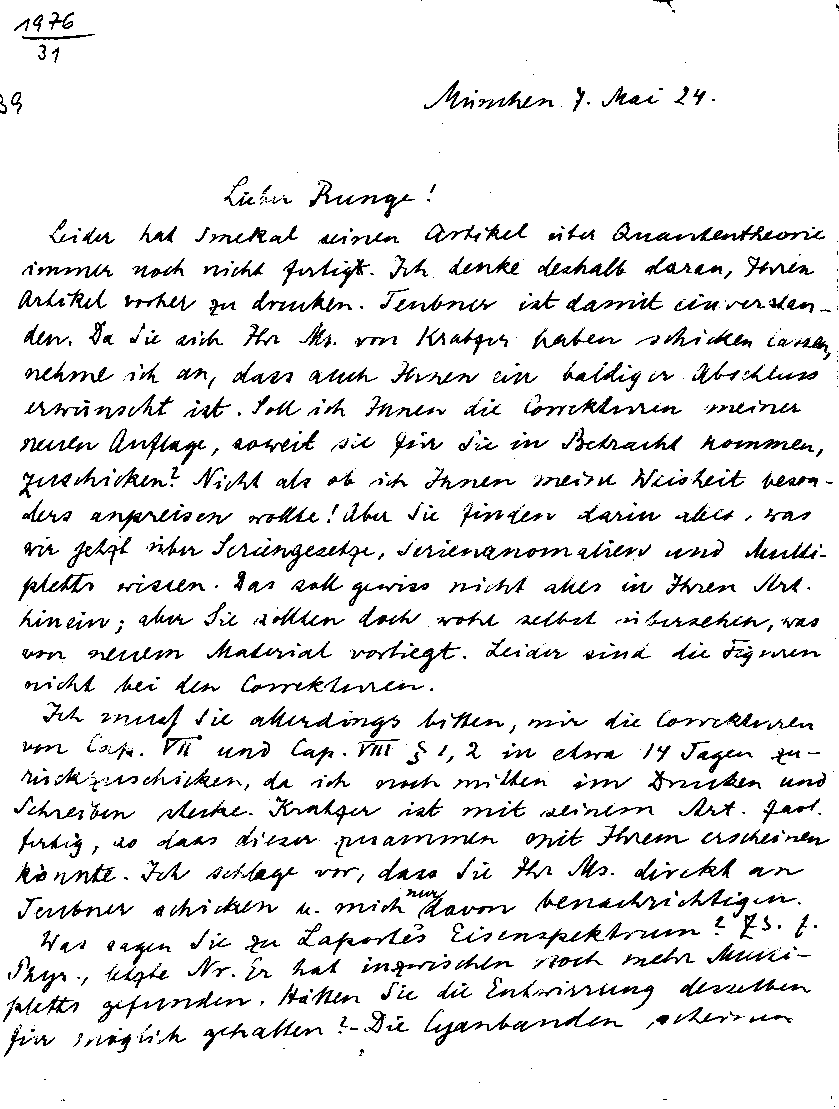 1976
31
39
München 7. Mai 24.
Lieber Runge!
Leider hat Smekal seinen Artikel über Quantentheorie
immer noch nicht fertigt. Ich denke deshalb daran, Ihren
Artikel vorher zu drucken. Teubner ist damit einverstan-
den. Da Sie sich Ihr Ms. von Kratzer haben schicken lassen,
nehme ich an, dass auch Ihnen ein baldiger Abschluss
erwünscht ist. Soll ich Ihnen die Correkturen meiner
neuen Auflage, soweit sie für Sie in Betracht kommen,
zuschicken? Nicht als ob ich Ihnen meine Weisheit beson-
ders anpreisen wollte! Aber Sie finden darin alles, was
wir jetzt über Seriengesetze, Serienanomalien und Multi-
pletts wissen. Das soll gewiss nicht alles in Ihren Art.
hinein; aber Sie sollten doch wohl selbst übersehen, was
von neuem Material vorliegt. Leider sind die Figuren
nicht bei den Correkturen.
Ich muss Sie allerdings bitten, mir die Correkturen
von Cap. VII und Cap. VIII § 1, 2 in etwa 14 Tagen zu-
rückzuschicken, da ich noch mitten im Drucken und
Schreiben stecke. Kratzer ist mit seinem Art. fast
fertig, so dass dieser zusammen mit Ihrem erscheinen
könnte. Ich schlage vor, dass Sie Ihr Ms. direkt an
Teubner schicken u. mich nur davon benachrichtigen.
Was sagen Sie zu Laporte's Eisenspektrum? Zs. f.
Phys., letzte Nr. Er hat inzwischen noch mehr Multi-
pletts gefunden. Hätten Sie die Entwirrung desselben
für möglich gehalten? - Die Cyanbanden scheinen